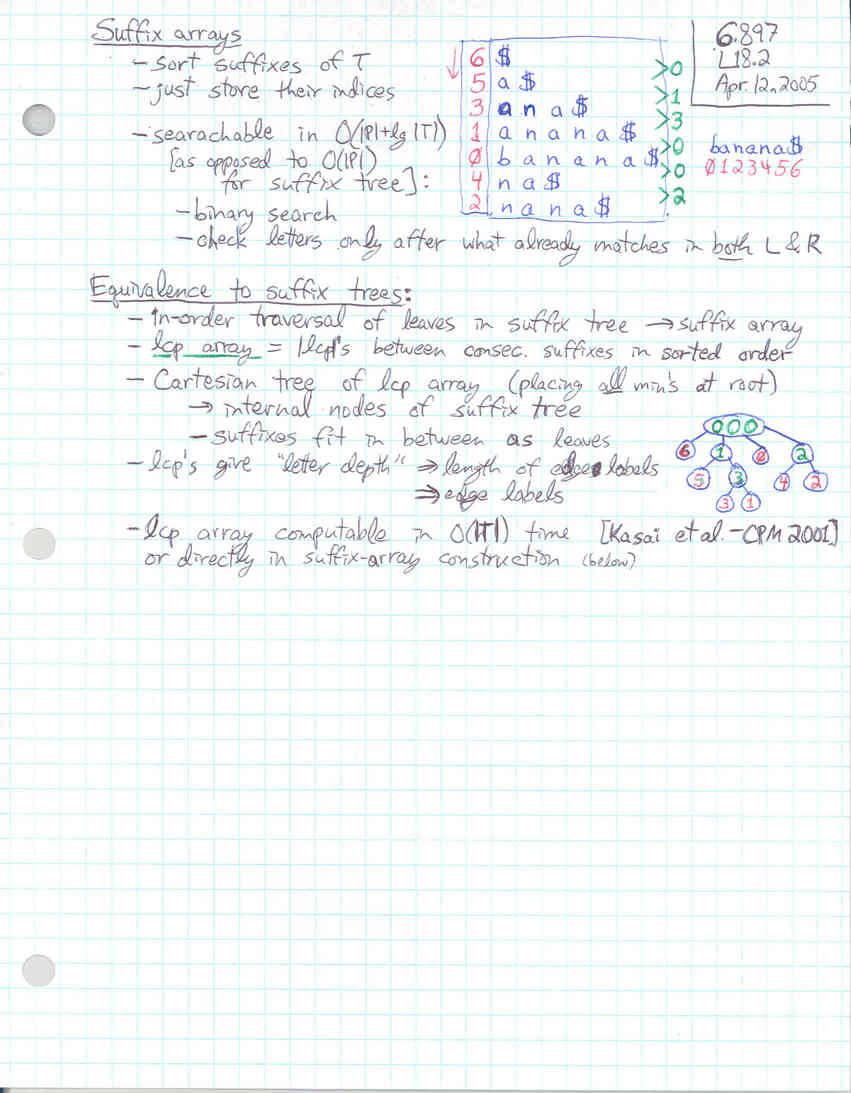 Suffix arrays
- sort suffixes of T
- just store their indices
- searachable in O(|P|+lg |T|)
[as opposed to O(|P|)
for suffix tree]:
- binary search
- check letters only after what already matches in both L & R
6 $
5 a $
3 a n a $
1 a n a n a $
0 b a n a n a $
4 n a $
2 n a n a $
>0
>1
>3
>0
>0
>2
6.897
L18.2
Apr. 12, 2005
banana$
0123456
Equivalence to suffix trees:
- In-order traversal of leaves in suffix tree → suffix array
- lcp array = |lcp|'s between consec. suffixes in sorted order
- Cartesian tree of lcp array (placing all min's at root)
→ internal nodes of suffix tree
- suffixes fit in between as leaves
- lcp's give "letter depth" ⇒ length of edge labels
⇒ edge labels
000
6 1 0 2
5 3 4 2
3 1
- lcp array computable in O(|T|) time [Kasai et al. - CPM 2001]
or directly in suffix-array construction (below)